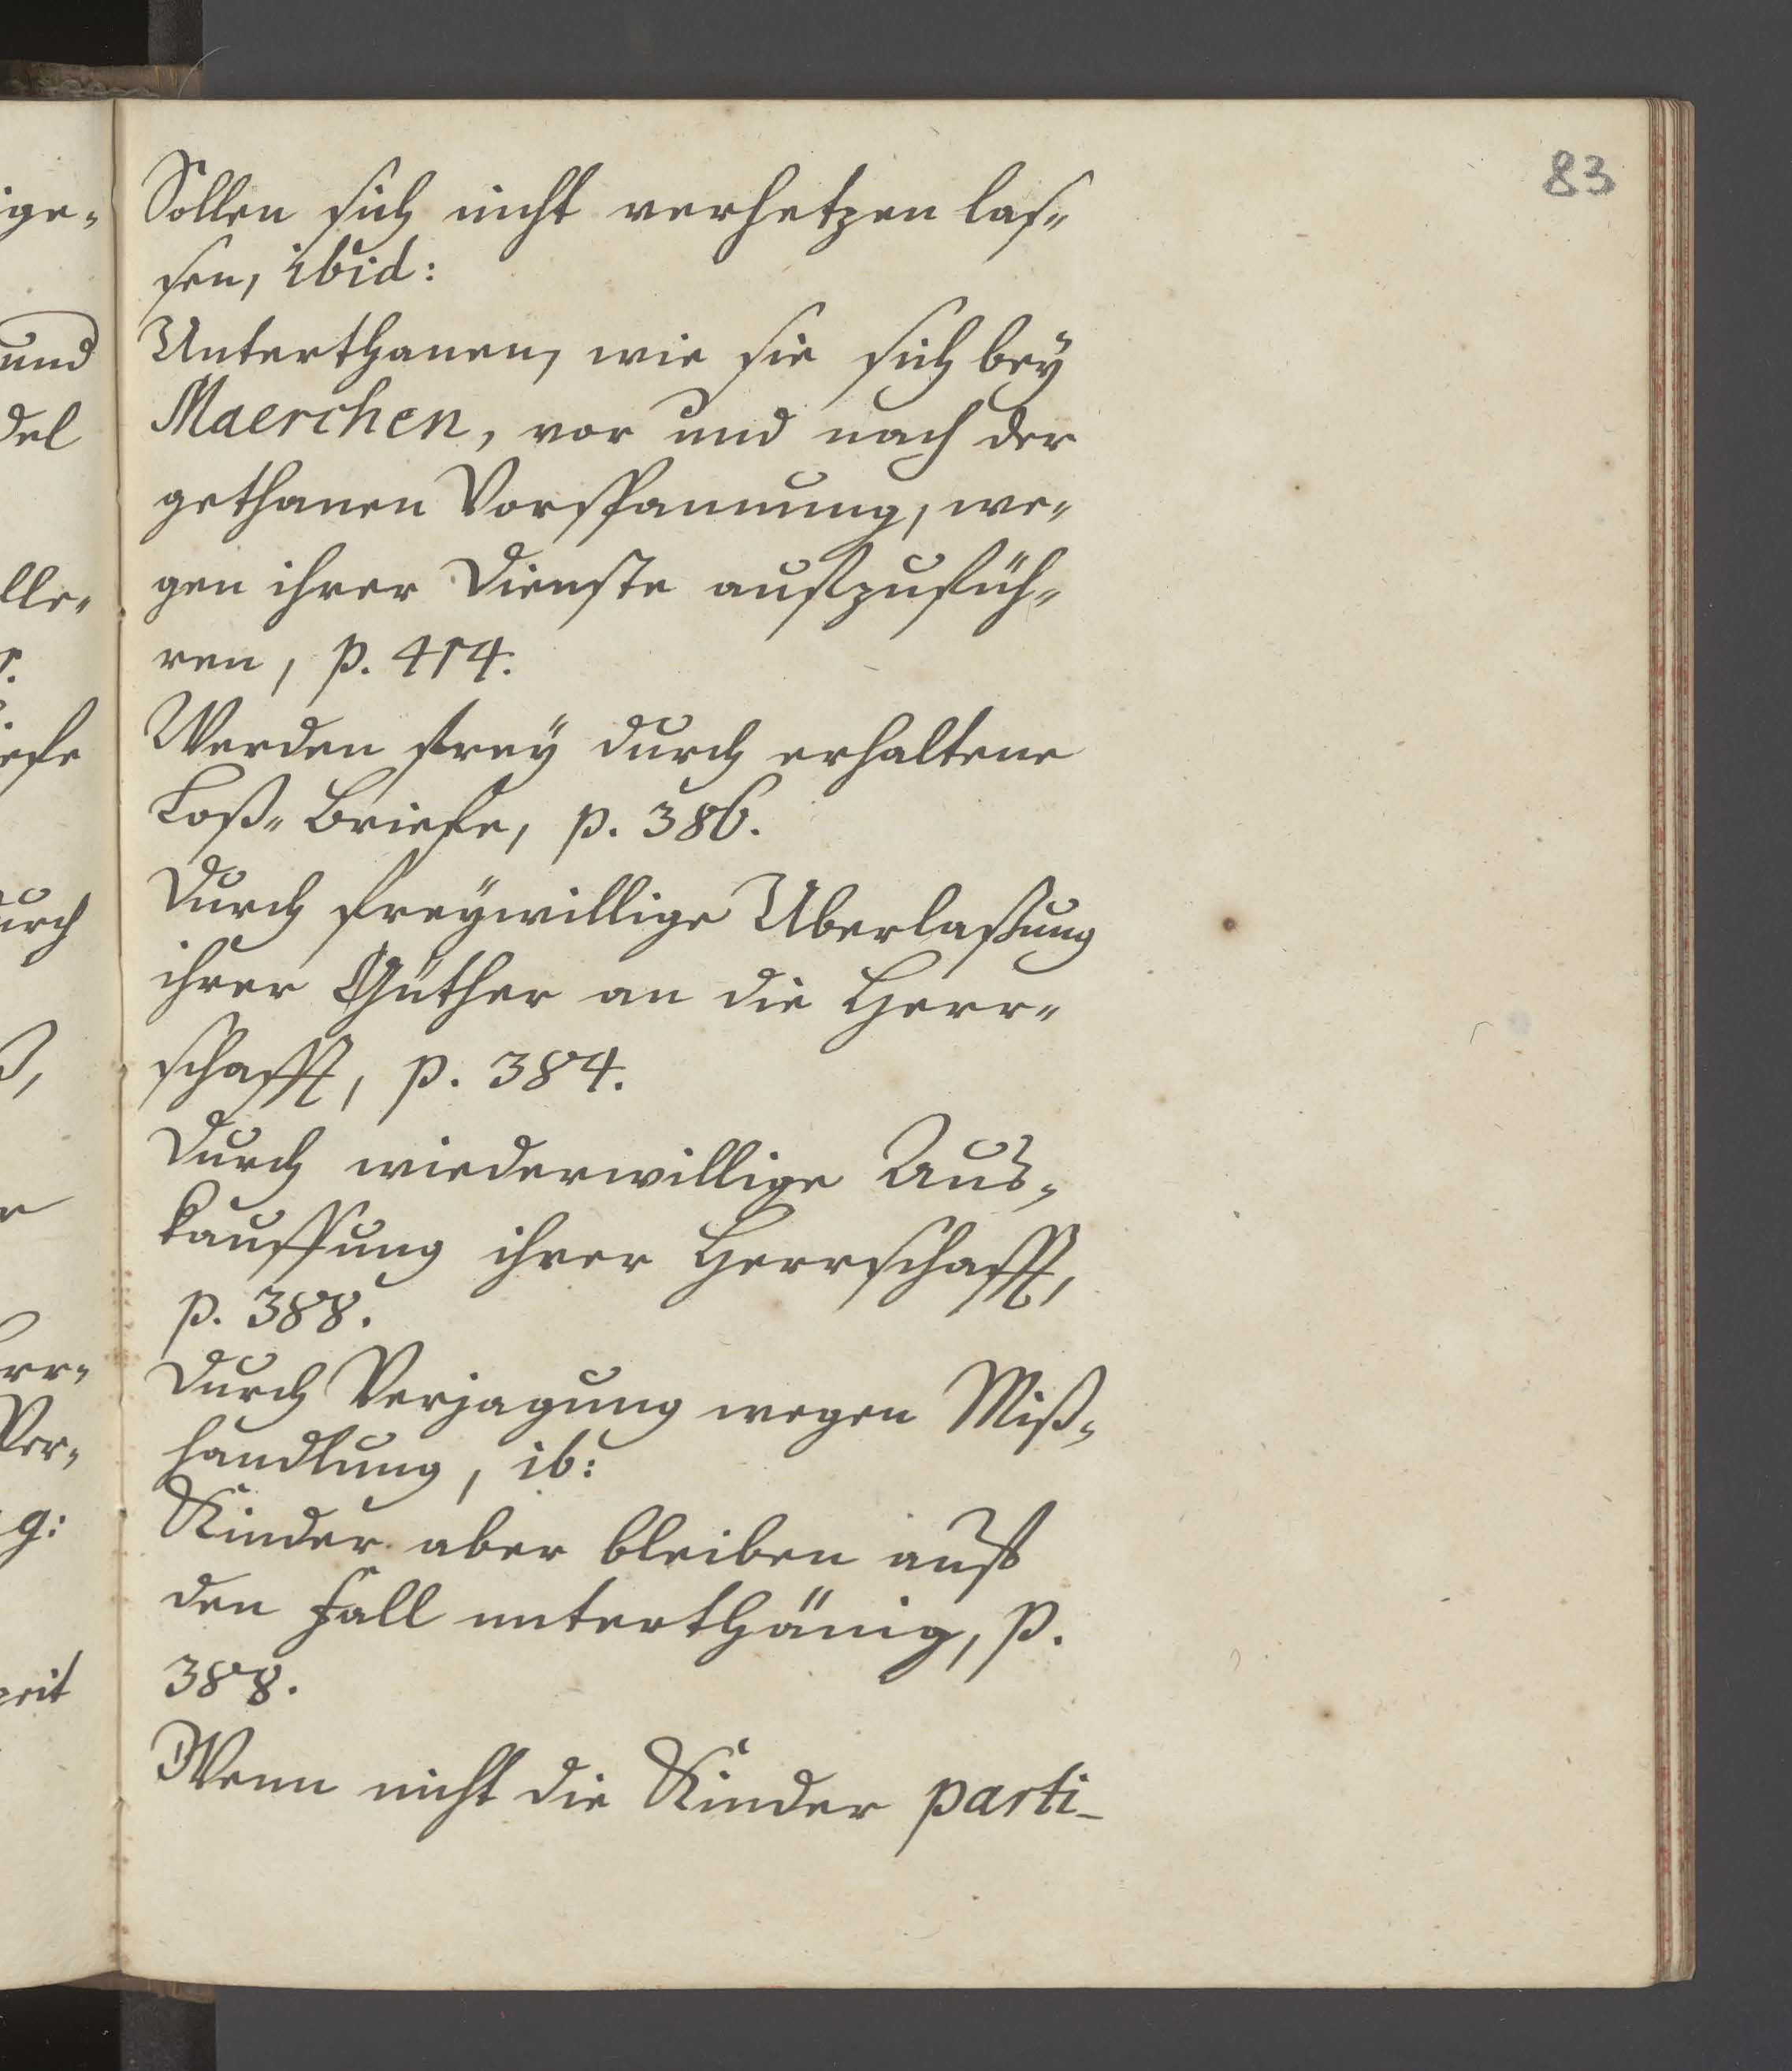 83
Sollen sich nicht verhetzen las-
sen, ibid:
Unterthanen, wie sie sich bey
Maerchen, vor und nach der
gethanen Vorspannung, we-
gen ihrer Dienste aufzufüh-
ren, p. 414.
Werden frey durch erhaltene
Loß-Briefe, p. 386.
Durch freywillige Uberlaßung
ihrer Güther an die Herr-
schafft, p. 384.
Durch wiederwillige Aus-
kauffung ihrer Herrschafft,
p. 388.
Durch Verjagung wegen Miß-
handlung, ib:
Kinder aber bleiben auf
den Fall unterthänig, p.
388.
Wenn nicht die Kinder parti-